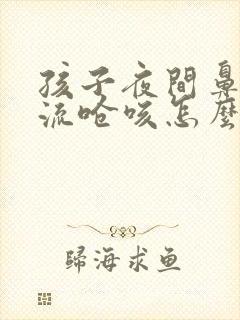 孩子夜間鼻
流嗆咳怎麼
歸海求魚